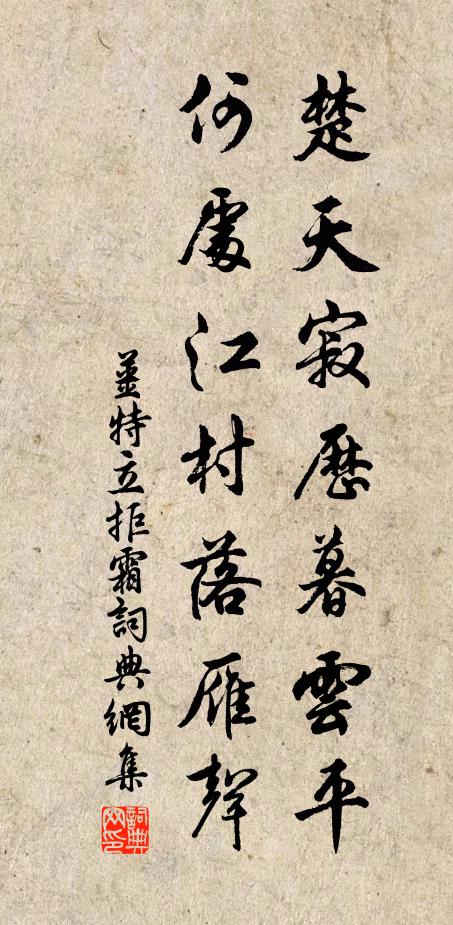 楚天寂歷暮雲平
何處江村落雁聲
姜特立拒霜詞典網集
詞典網印